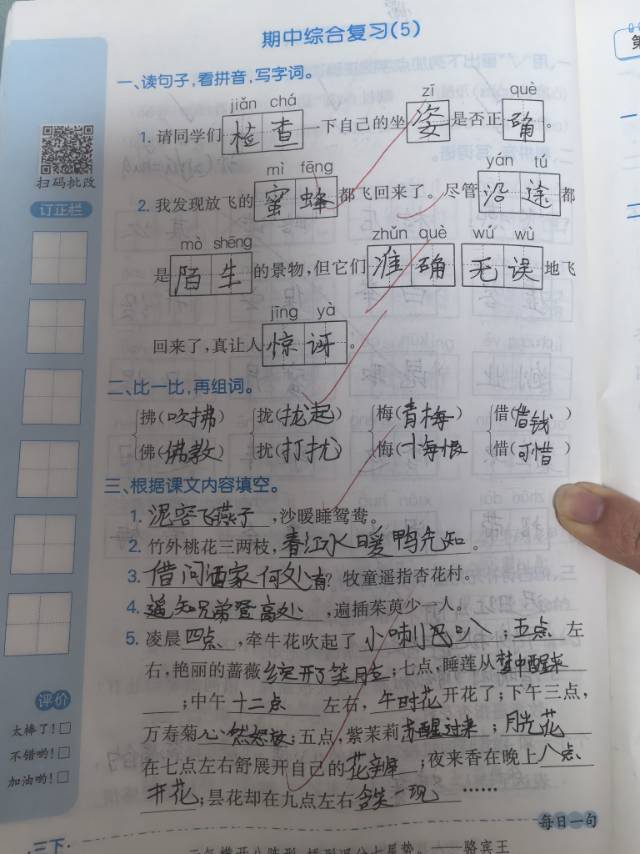 期中综合复习(5)
一、读句子,看拼音,写字词。
jiǎn chá zī què
1. 请同学们检查一下自己的坐姿是否正确。
mì fēng yán tú
2. 我发现放飞的蜜蜂都飞回来了。尽管沿途都
mò shēng zhǔn què wú wù
是陌生的景物,但它们准确无误地飞
jīng yà
回来了,真让人惊讶。
二、比一比,再组词。
拂(吹拂) 拢(拢起) 梅(青梅) 借(借钱)
佛(佛教) 扰(打扰) 悔(悔恨) 惜(可惜)
三、根据课文内容填空。
1. 泥容飞燕子,沙暖睡鸳鸯。
2. 竹外桃花三两枝,春江水暖鸭先知。
3. 借问酒家何处有?牧童遥指杏花村。
4. 遥知兄弟登高处,遍插茱萸少一人。
5. 凌晨四点,牵牛花吹起了小喇叭;五点左
右,艳丽的蔷薇绽开了笑脸;七点,睡莲从梦中醒来
;中午十二点左右,午时花开花了;下午三点,
万寿菊欣然怒放;五点,紫茉莉苏醒过来;月光花
在七点左右舒展开自己的花瓣;夜来香在晚上八点
开花;昙花却在九点左右含笑一现……
扫码批改
订正栏
评价
太棒了!
不错哟!
加油哟!
三下
每日一句
骆宾王
第
一